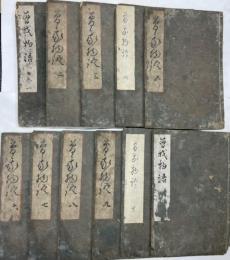 曽我物語 巻一
曽我物語 二
曽我物語 三
曽我物語 四
曽我物語 五
曽我物語 六
曽我物語 七
曽我物語 八
曽我物語 九
曽我物語 十
曽我物語